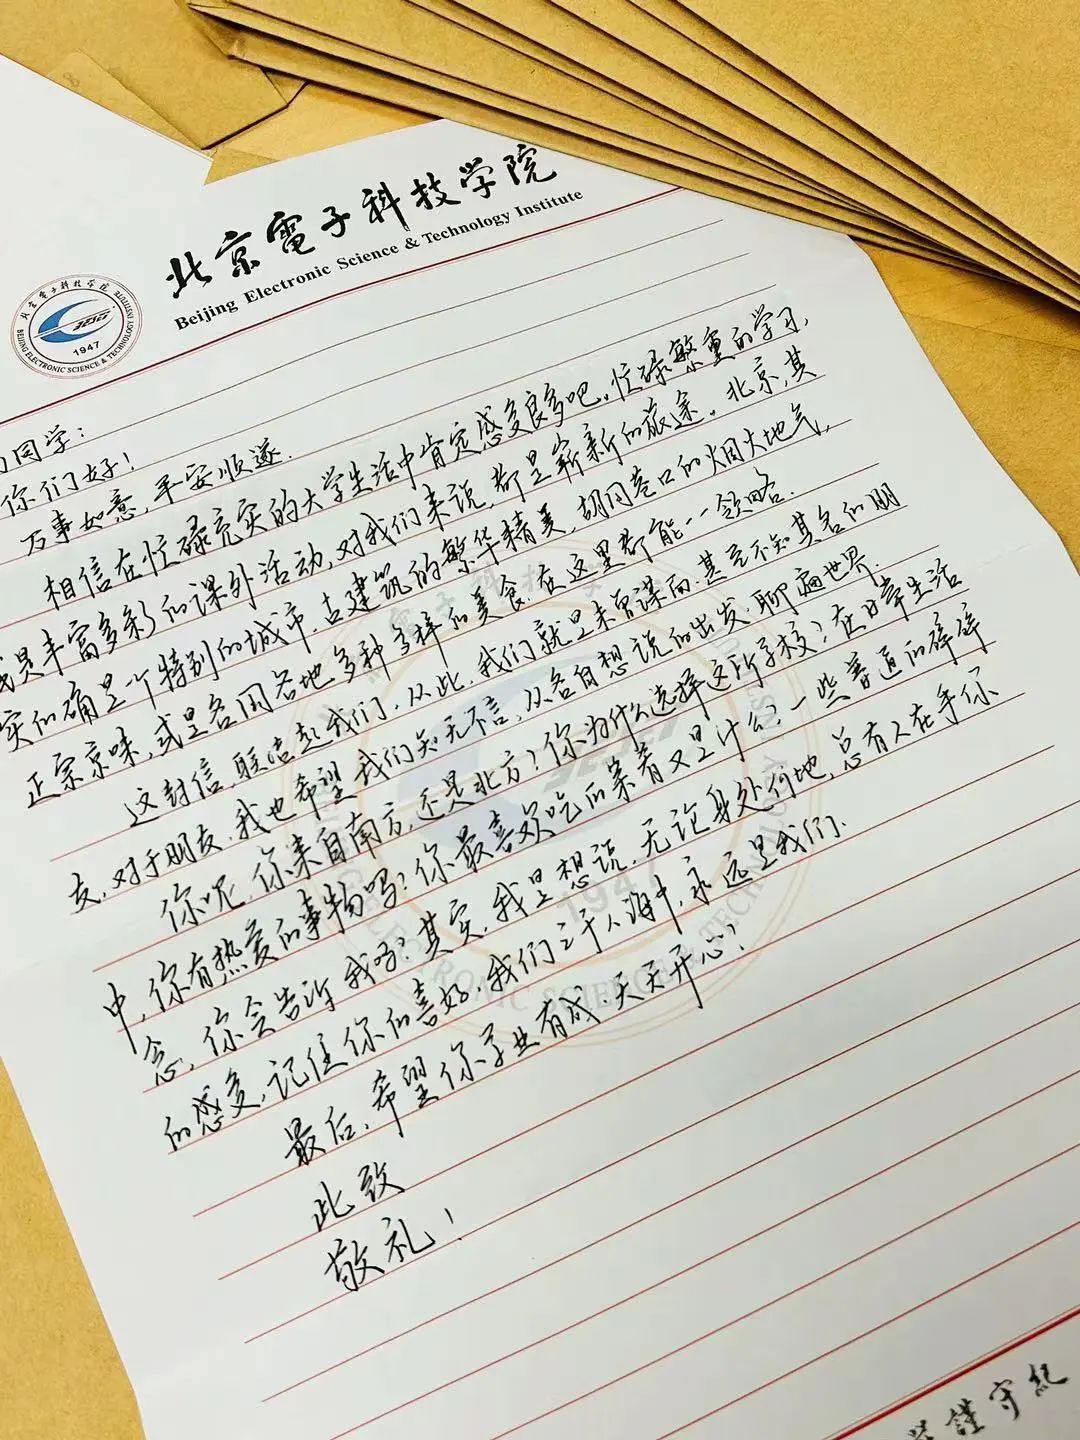 北京電子科技学院
Beijing Electronic Science & Technology Institute
北京電子科技学院
BEIJING ELECTRONIC SCIENCE & TECHNOLOGY INSTITUTE
1947
同学：
你们好！
万事如意，平安顺遂.
相信在忙碌充实的大学生活中肯定感受良多吧。忙碌繁重的学习，
或是丰富多彩的课外活动，对我们来说，都是崭新的旅途。北京，其
实的确是一个特别的城市，古建筑的繁华精美，胡同巷口的烟火地气，
正宗京味，或是各国各地多种多样的美食，在这里都能一一领略.
这封信，联结起我们，从此，我们就是未曾谋面，甚至不知其名的朋
友，对于朋友，我也希望我们知无不言，从各自想说的出发，聊遍世界.
你呢，你来自南方，还是北方？你为什么选择这所学校？在日常生活
中，你有热爱的事物吗？你最喜欢吃的菜肴又是什么？一些普通的碎碎
念，你会告诉我吗？其实，我是想说，无论身处何地，总有人在乎你
的感受，记住你的喜好，我们于人海中，永远是我们.
最后，希望你学业有成，天天开心！
此致
敬礼！
1947
謹守紀